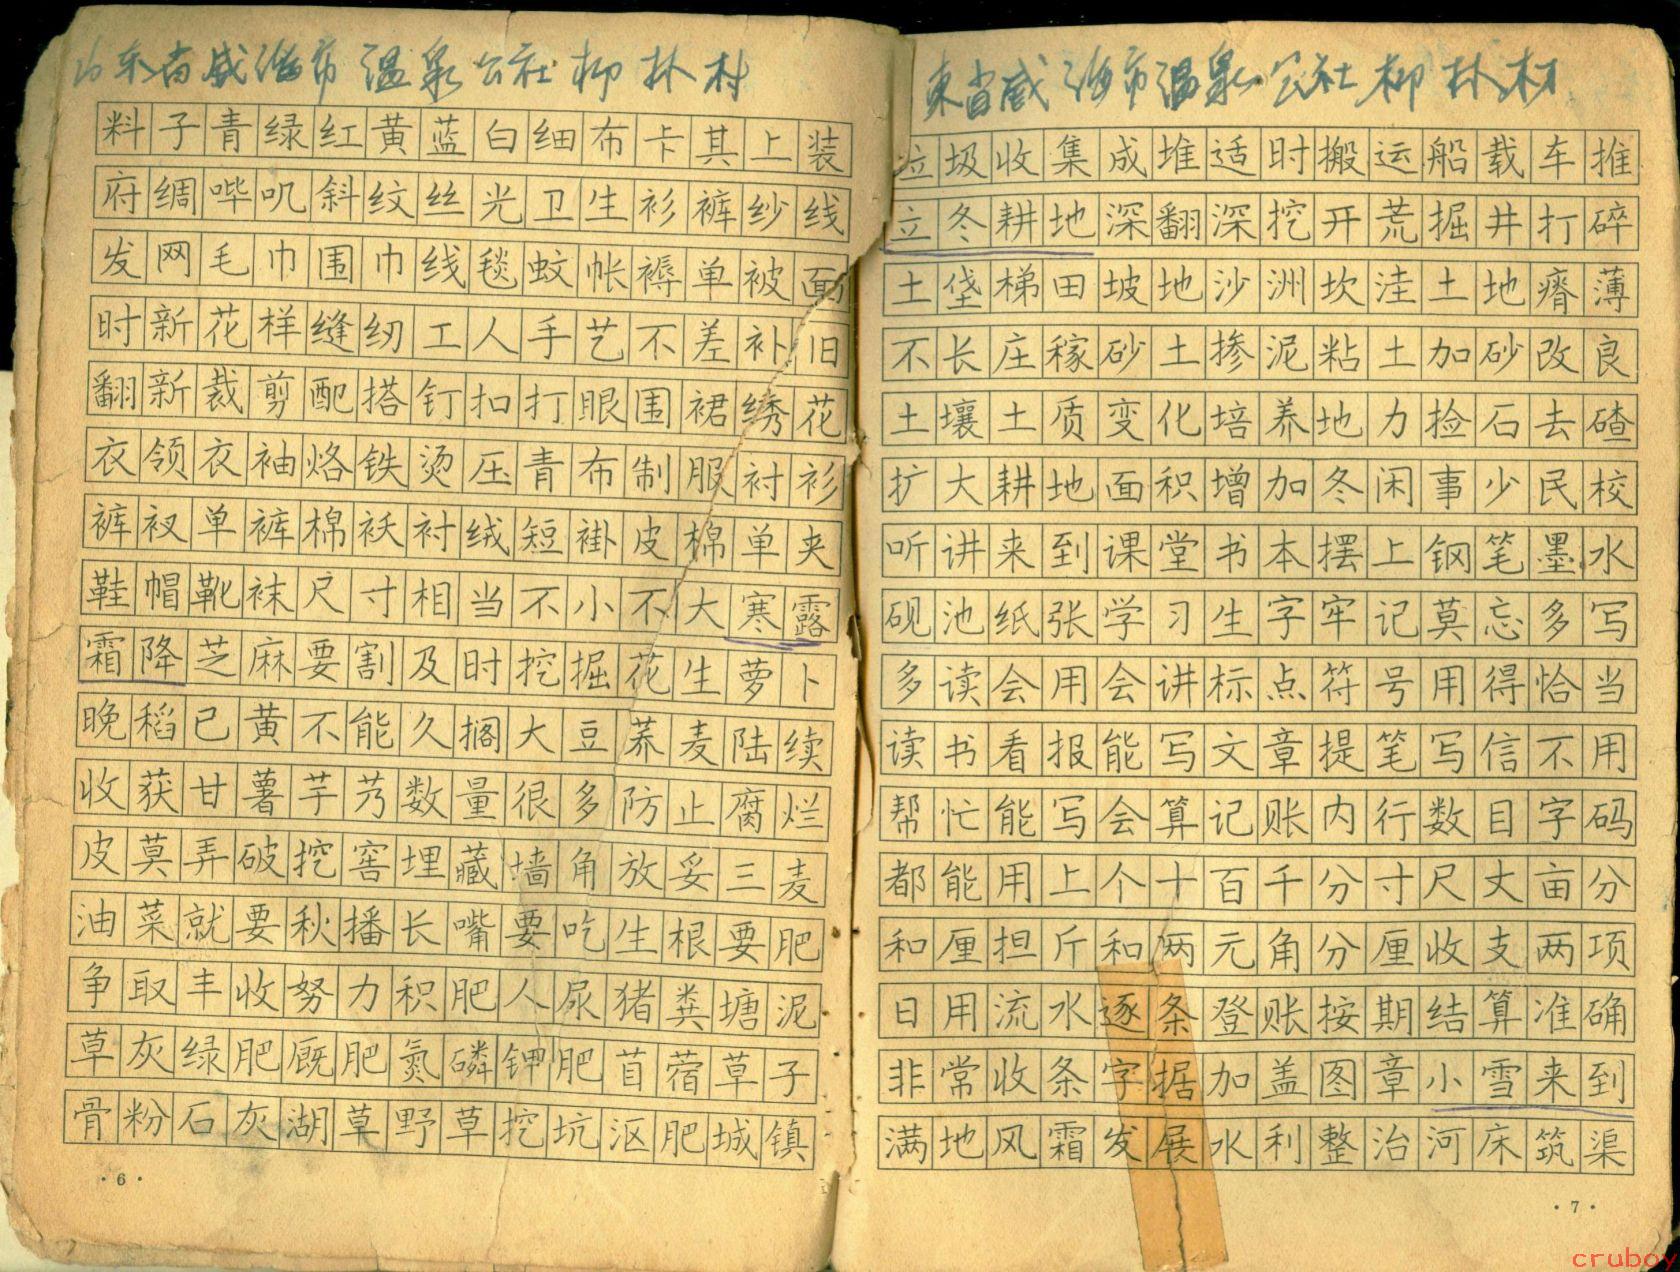 山东省威海市温泉公社柳林村
料子青绿红黄蓝白细布卡其上装
府绸哔叽斜纹丝光卫生衫裤纱线
发网毛巾围巾线毯蚊帐褥单被面
时新花样缝纫工人手艺不差补旧
翻新裁剪配搭钉扣打眼围裙绣花
衣领衣袖烙铁烫压青布制服衬衫
裤衩单裤棉袄衬绒短褂皮棉单夹
鞋帽靴袜尺寸相当不小不大寒露
霜降芝麻要割及时挖掘花生萝卜
晚稻已黄不能久搁大豆荞麦陆续
收获甘薯芋艿数量很多防止腐烂
皮莫弄破挖窖埋藏墙角放妥三麦
油菜就要秋播长嘴要吃生根要肥
争取丰收努力积肥人尿猪粪塘泥
草灰绿肥厩肥氮磷钾肥苜蓿草子
骨粉石灰湖草野草挖坑沤肥城镇
·6·
東省威海市温泉公社柳林村
垃圾收集成堆适时搬运船载车推
立冬耕地深翻深挖开荒掘井打碎
土垡梯田坡地沙洲坎洼土地瘠薄
不长庄稼砂土掺泥粘土加砂改良
土壤土质变化培养地力捡石去碴
扩大耕地面积增加冬闲事少民校
听讲来到课堂书本摆上钢笔墨水
砚池纸张学习生字牢记莫忘多写
多读会用会讲标点符号用得恰当
读书看报能写文章提笔写信不用
帮忙能写会算记账内行数目字码
都能用上个十百千分寸尺丈亩分
和厘担斤和两元角分厘收支两项
日用流水逐条登账按期结算准确
非常收条字据加盖图章小雪来到
满地风霜发展水利整治河床筑渠
·7·
cruboy